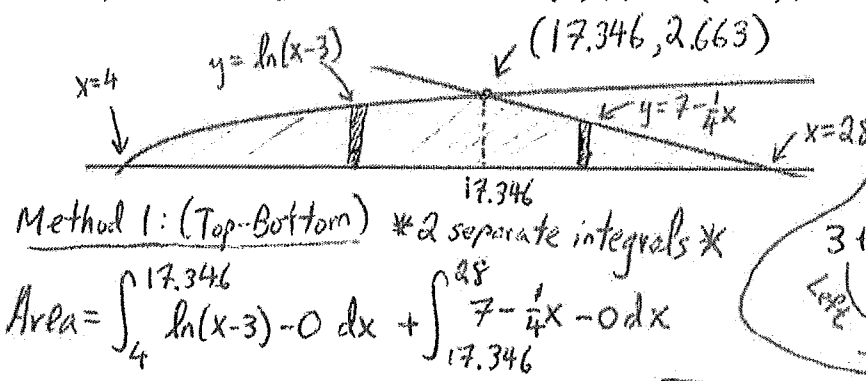 (17.346, 2.663)
y = ln(x-3)
x=4
y = 7 - 1/4x
x=28
17.346
Method 1: (Top-Bottom) *2 separate integrals*
Area = ∫_4^17.346 ln(x-3) - 0 dx + ∫_17.346^28 7 - 1/4x - 0 dx